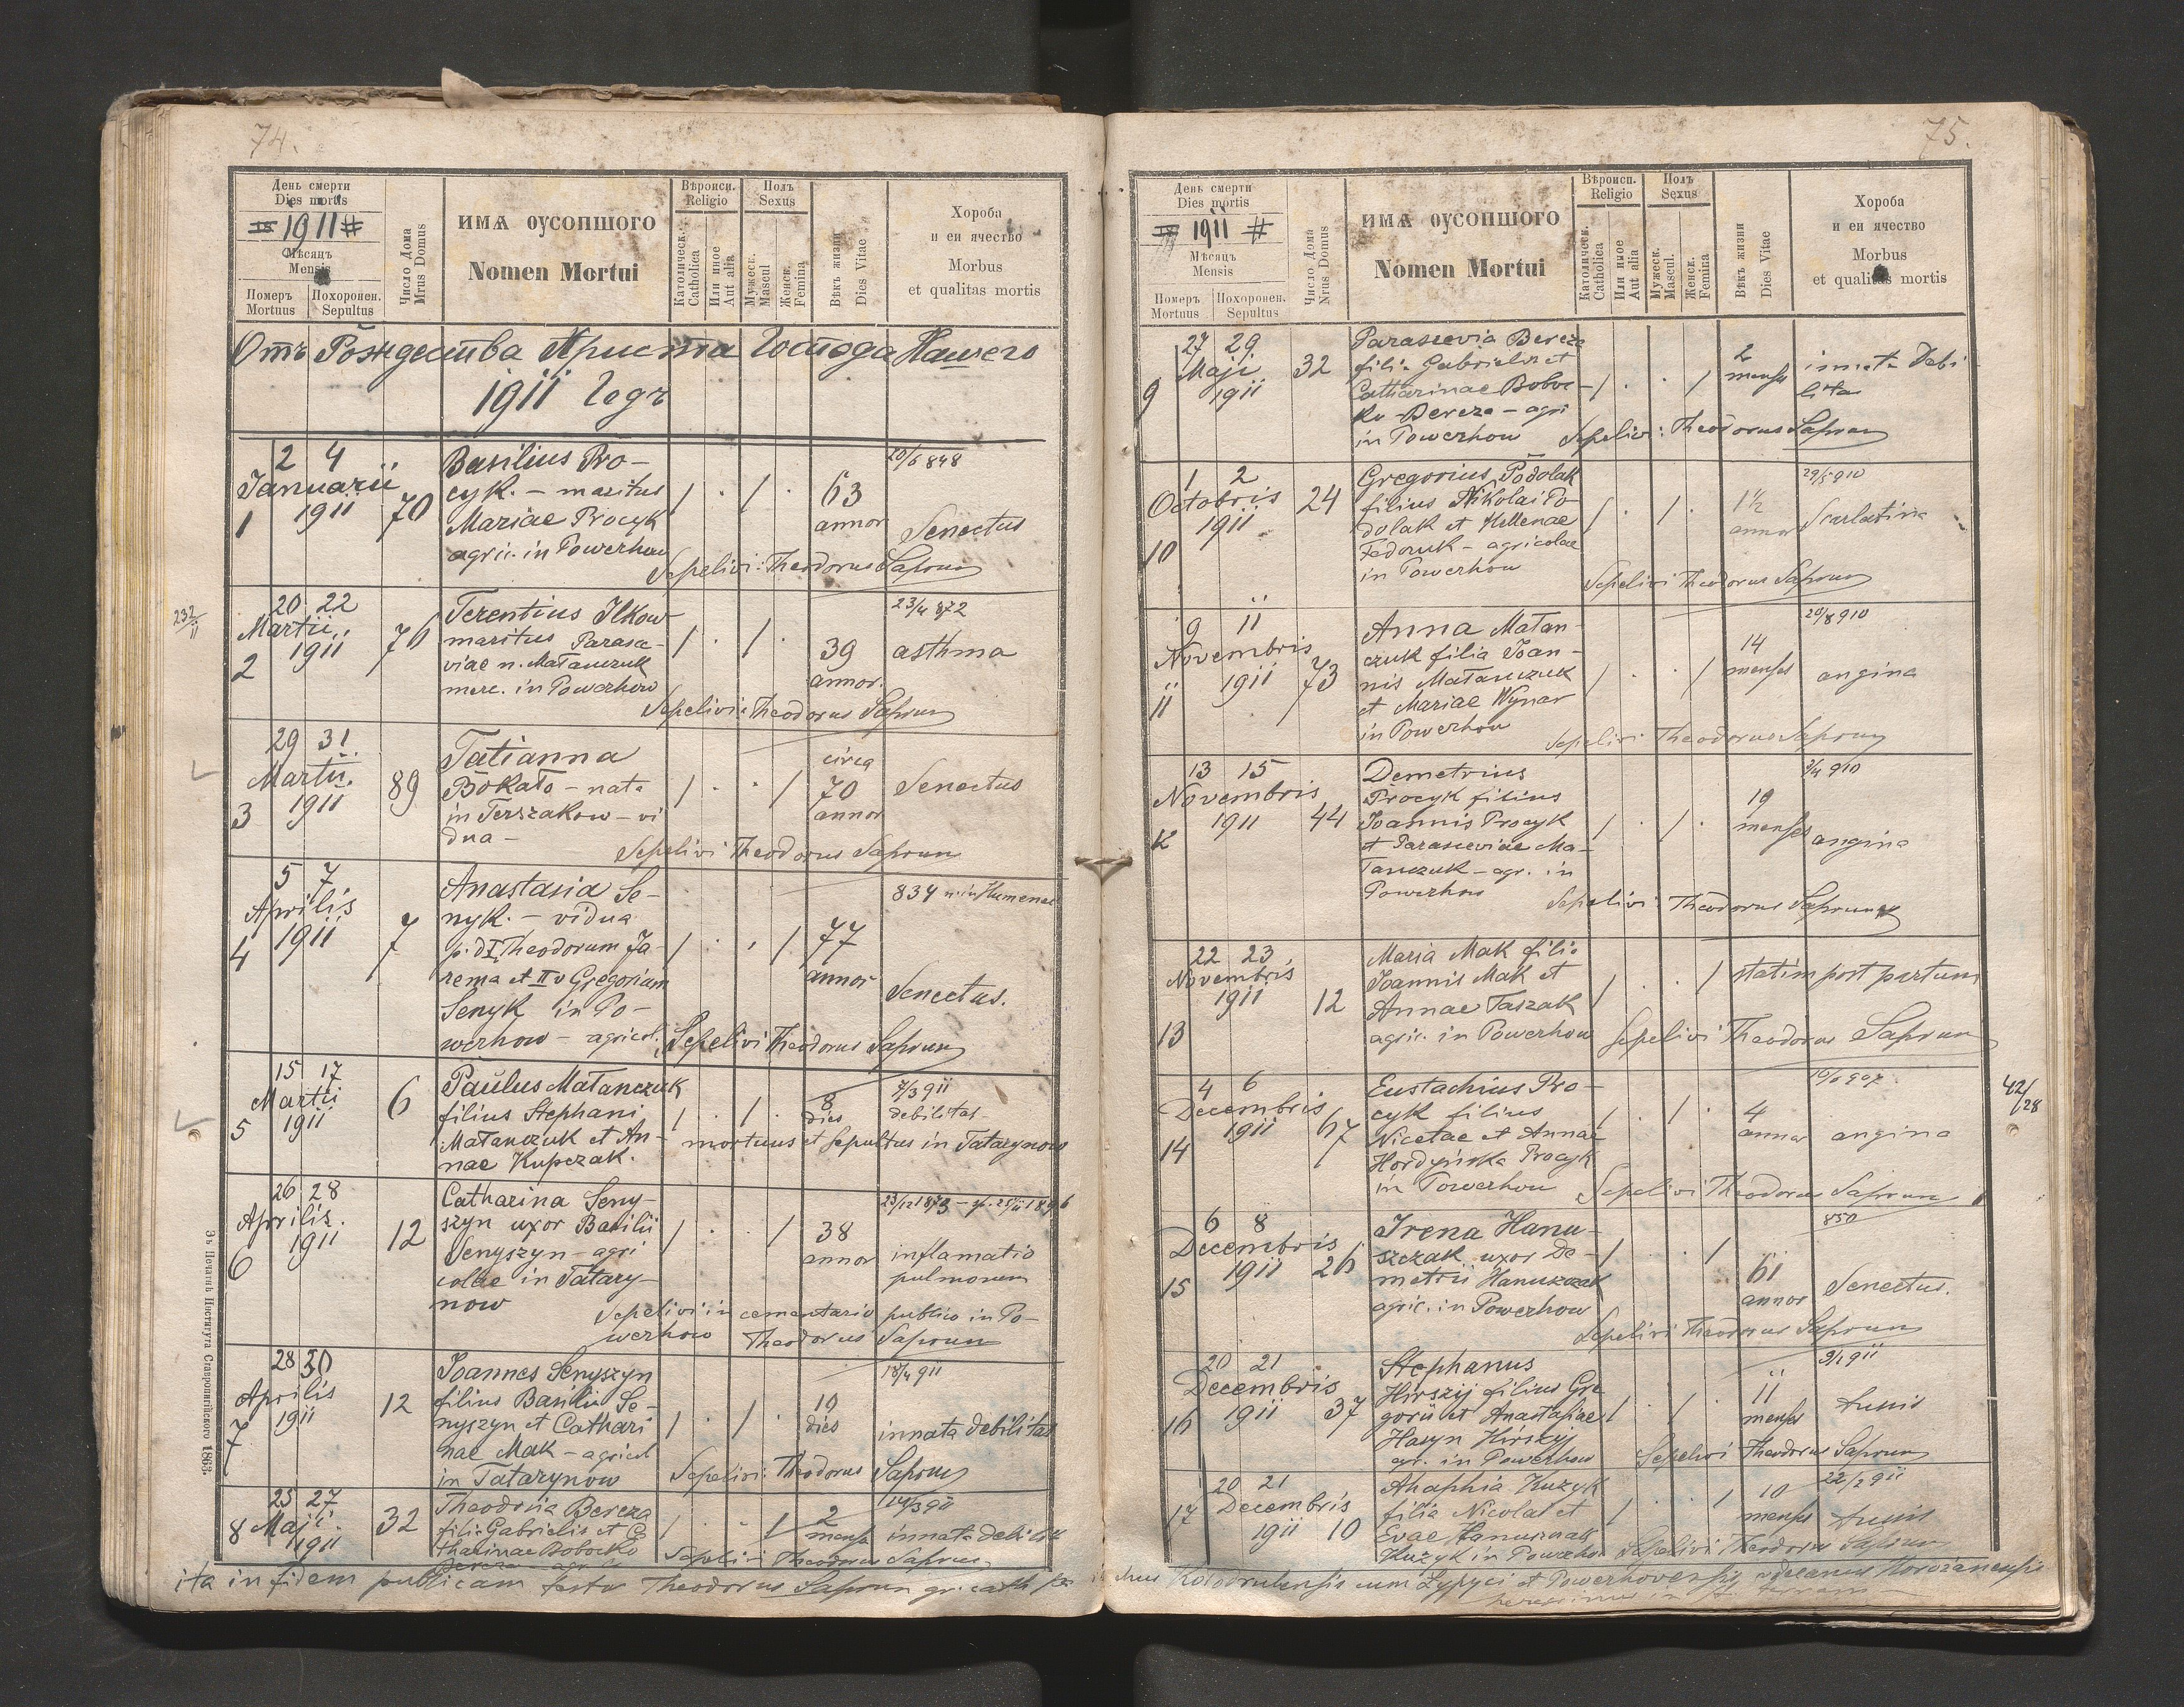 74.
День смерти
Dies mortis
1911
Мѣсяцъ
Mensis
Померъ
Mortuus
Похоронен.
Sepultus
Число Дома
Nrus Domus
ИМѦ ОУСОПШОГО
Nomen Mortui
Вѣроисп.
Religio
Католическ.
Catholica
Или иное
Aut alia
Полъ
Sexus
Мужеск.
Mascul
Женск.
Femina
Вѣкъ жизни
Dies Vitae
Хороба
и еи ячество
Morbus
et qualitas mortis
Отъ Рождества Христа Господа Нашего
1911 Года
2 4
Januarii
1911
1
70
Basilius Pro-
cyk. - maritus
Mariae Procyk
agric. in Powerhow
63
annor
20/6 848
Senectus
Sepelivi: Theodorus Saprun
232/II
20 22
Martii
1911
2
76
Terentius Ilkow
maritus Parasc-
viae n. Matanczuk
merc. in Powerhow
39
annor.
23/4 872
asthma
Sepelivi: Theodorus Saprun
29 31.
Martii.
1911
3
89
Tatianna
Bokato - nata
in Terszakow - vi
dua -
circa
70
annor
Senectus
Sepelivi Theodorus Saprun
5 7
Aprilis
1911
4
7
Anastasia Se-
nyk. - vidua
p. d I Theodorum Ja-
rema et II v Gregorium
Senyk in Po-
werhow - agricol.
77
annor
834 n. in Humeniec
Senectus.
Sepelivi Theodorus Saprun
15 17
Martii
1911
5
6
Paulus Matanczuk
filius Stephani
Matanczuk et An-
nae Kupczak.
8
dies
7/3 911
debilitas
mortuus et sepultus in Tatarynow
26 28
Aprilis.
1911
6
12
Catharina Seny-
szyn uxor Basilii
Senyszyn - agri
colae in Tatary-
now
38
annor
23/12 1873
inflamatio
pulmonum
Sepelivi in cementario publico in Po-
werhow Theodorus Saprun
28 30
Aprilis
1911
7
12
Joannes Senyszyn
filius Basilii Se-
nyszyn et Cathari
nae Mak - agricol
in Tatarynow
10
dies
18/4 911
innata debilitas
Sepelivi: Theodorus Saprun
25 27
Maji.
1911
8
32
Theodosia Bereza
filia Gabrielis et Ca
tharinae Bobecko
Bereza agr
2
mens
14/3 911
innata debilitas
Sepelivi Theodorus Saprun
Зъ Печатнѣ Института Ставропигійского 1863.
ita in fidem publicam testor Theodorus Saprun gr. cath
75.
День смерти
Dies mortis
1911
Мѣсяцъ
Mensis
Померъ
Mortuus
Похоронен.
Sepultus
Число Дома
Nrus Domus
ИМѦ ОУСОПШОГО
Nomen Mortui
Вѣроисп.
Religio
Католическ.
Catholica
Или иное
Aut alia
Полъ
Sexus
Мужеск.
Mascul.
Женск.
Femina
Вѣкъ жизни
Dies Vitae
Хороба
и еи ячество
Morbus
et qualitas mortis
27 29
Maji
1911
9
32
Parascevia Bereza
filia Gabrielis et
Catharinae Bobec-
ko Bereza - agri
in Powerhow
2
menses
innata Debi
litas
Sepelivi: Theodorus Saprun
1 2
Octobris
1911
10
24
Gregorius Podolak
filius Nikolai Po-
dolak et Hellenae
Fedoruk - agricolae
in Powerhow
1½
annor
29/5 910
Scarlatina
Sepelivi Theodorus Saprun
9 11
Novembris
1911
11
73
Anna Matan-
czuk filia Joan-
nis Matanczuk
et Mariae Wynar
in Powerhow
14
menses
20/8 910
angina
Sepelivi Theodorus Saprun
13 15
Novembris
1911
12
44
Demetrius
Procyk filius
Joannis Procyk
et Parasceviae Ma-
tanczuk - agr. in
Powerhow
19
menses
3/4 910
angina
Sepelivi Theodorus Saprun
22 23
Novembris
1911
13
12
Maria Mak filia
Joannis Mak et
Annae Taszak
agric. in Powerhow
statim post partum
Sepelivi Theodorus Saprun
4 6
Decembris
1911
14
67
Eustachius Pro-
cyk filius
Nicetae et Annae
Hordyńska Procyk
in Powerhow
4
annor
angina
42/28
Sepelivi Theodorus Saprun
6 8
Decembris
1911
15
26
Irena Hanu-
szczak uxor De-
metrii Hanuszczak
agric. in Powerhow
61
annor
850
Senectus.
Sepelivi Theodorus Saprun
20 21
Decembris
1911
16
37
Stephanus
Hirszij filius Gre
gorii et Anastasiae
Hasyn Hirszij
agr. in Powerhow
11
menses
9/1 911
tussis
Sepelivi Theodorus Saprun
20 21
Decembris
1911
17
10
Anaphia Kuzyk
filia Nicolai et
Evae Hanuszczak
Kuzyk in Powerhow
10
menses
22/2 911
tussis
Sepelivi Theodorus Saprun
Kołodrubensis cum Łypyci et Powerhovensis decanus Horożanensis